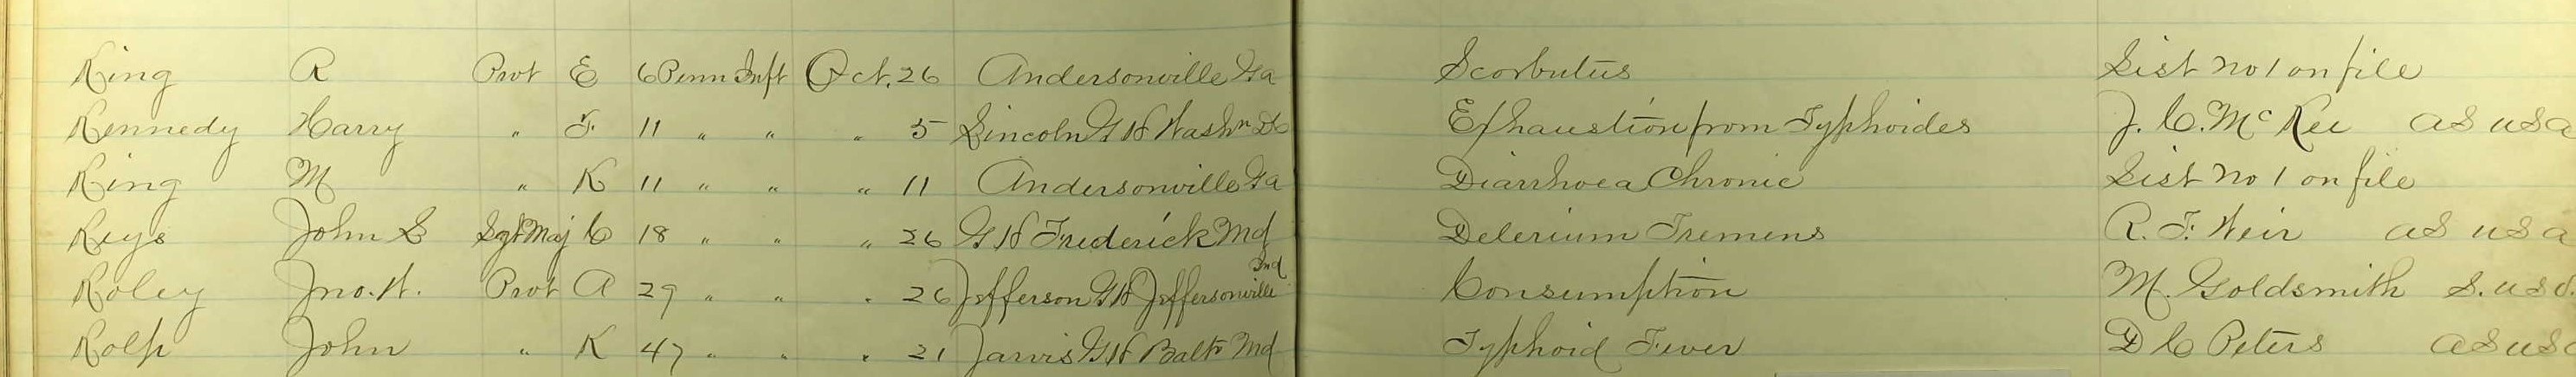 King R Prvt E 6 Penn Inft Oct. 26 Andersonville Ga Scorbutus List No 1 on file
Kennedy Harry " F. 11 " " " 5 Lincoln G H Washn DC Exhaustion from Typhoides J. C. McKee AS USA
King M " K 11 " " " 11 Andersonville Ga Diarrhoea Chronic List No 1 on file
Keys John S Sgt Maj C 18 " " " 26 G H Frederick Md Delerium Tremens R. F. Weir AS USA
Koley Jno. W. Prvt A 29 " " " 26 Jefferson G H Jeffersonville Ind Consumption M. Goldsmith S. US
Kolp John " K 47 " " " 21 Jarvis G H Balto Md Typhoid Fever D C Peters AS US